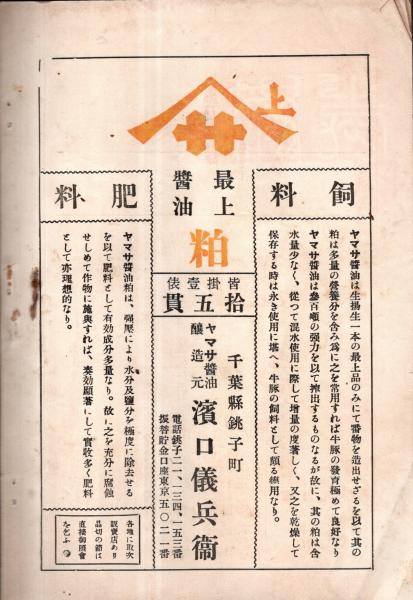 上
最上
醬油
粕
皆掛壹俵
拾五貫
千葉縣銚子町
ヤマサ醬油
釀造元
濱口儀兵衞
電話銚子二一、一三四、一五三番
振替貯金口座東京五〇二一番
飼料
ヤマサ醬油は生揚生一本の最上品のみにて番物を造出せざるを以て其の
粕は多量の營養分を含み爲に之を常用すれば牛豚の發育極めて良好なり
ヤマサ醬油は叄百噸の强力を以て搾出するものなるが故に、其の粕は含
水量少なく、從つて混水使用に際して增量の度著しく、又之を乾燥して
保存する時は永き使用に堪へ、牛豚の飼料として頗る德用なり。
肥料
ヤマサ醬油粕は、强壓により水分及鹽分を極度に除去せる
を以て肥料として有効成分多量なり。故に之を充分に腐蝕
せしめて作物に施與すれば、奏効顯著にして實收多く肥料
として亦理想的なり。
各地に取次
販賣店あり
品切の節は
直接御照會
を乞ふ